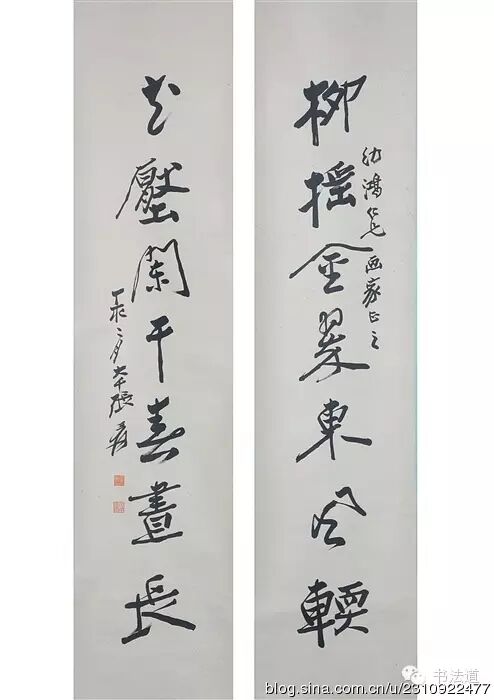 柳搖金翠東风輭
鴻仁兄画家正之
花壓闌干春晝長
丁亥二月大千張爰
书法道
blog.sina.com.cn/u/2310922477